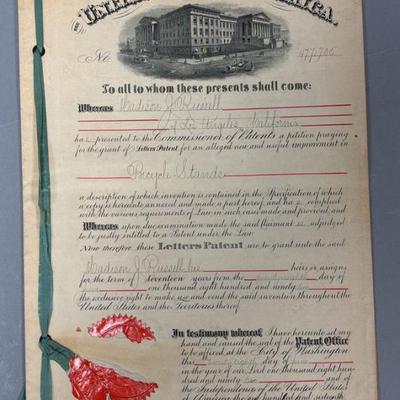 UNITED
No. 477,725
To all to whom these presents shall come:
Whereas Madison J. Russell
of Los Angeles, California
has presented to the Commissioner of Patents a petition praying
for the grant of Letters Patent for an alleged new and useful improvement in
Bicycle Stands
a description of which invention is contained in the Specification of which
a copy is hereunto annexed and made a part hereof, and has complied
with the various requirements of Law in such cases made and provided, and
Whereas upon due examination made the said Claimant is adjudged
to be justly entitled to a Patent under the Law.
Now therefore these Letters Patent are to grant unto the said
Madison J. Russell, his heirs or assigns
for the term of Seventeen years from the
one thousand eight hundred and ninety
the exclusive right to make use and vend the said invention throughout the
United States and the Territories thereof.
In testimony whereof I have hereunto set my
hand and caused the seal of the Patent Office
to be affixed at the City of Washington
this day of
in the year of our Lord one thousand eight
hundred and ninety and of
the Independence of the United States
of America the one hundred and sixteenth